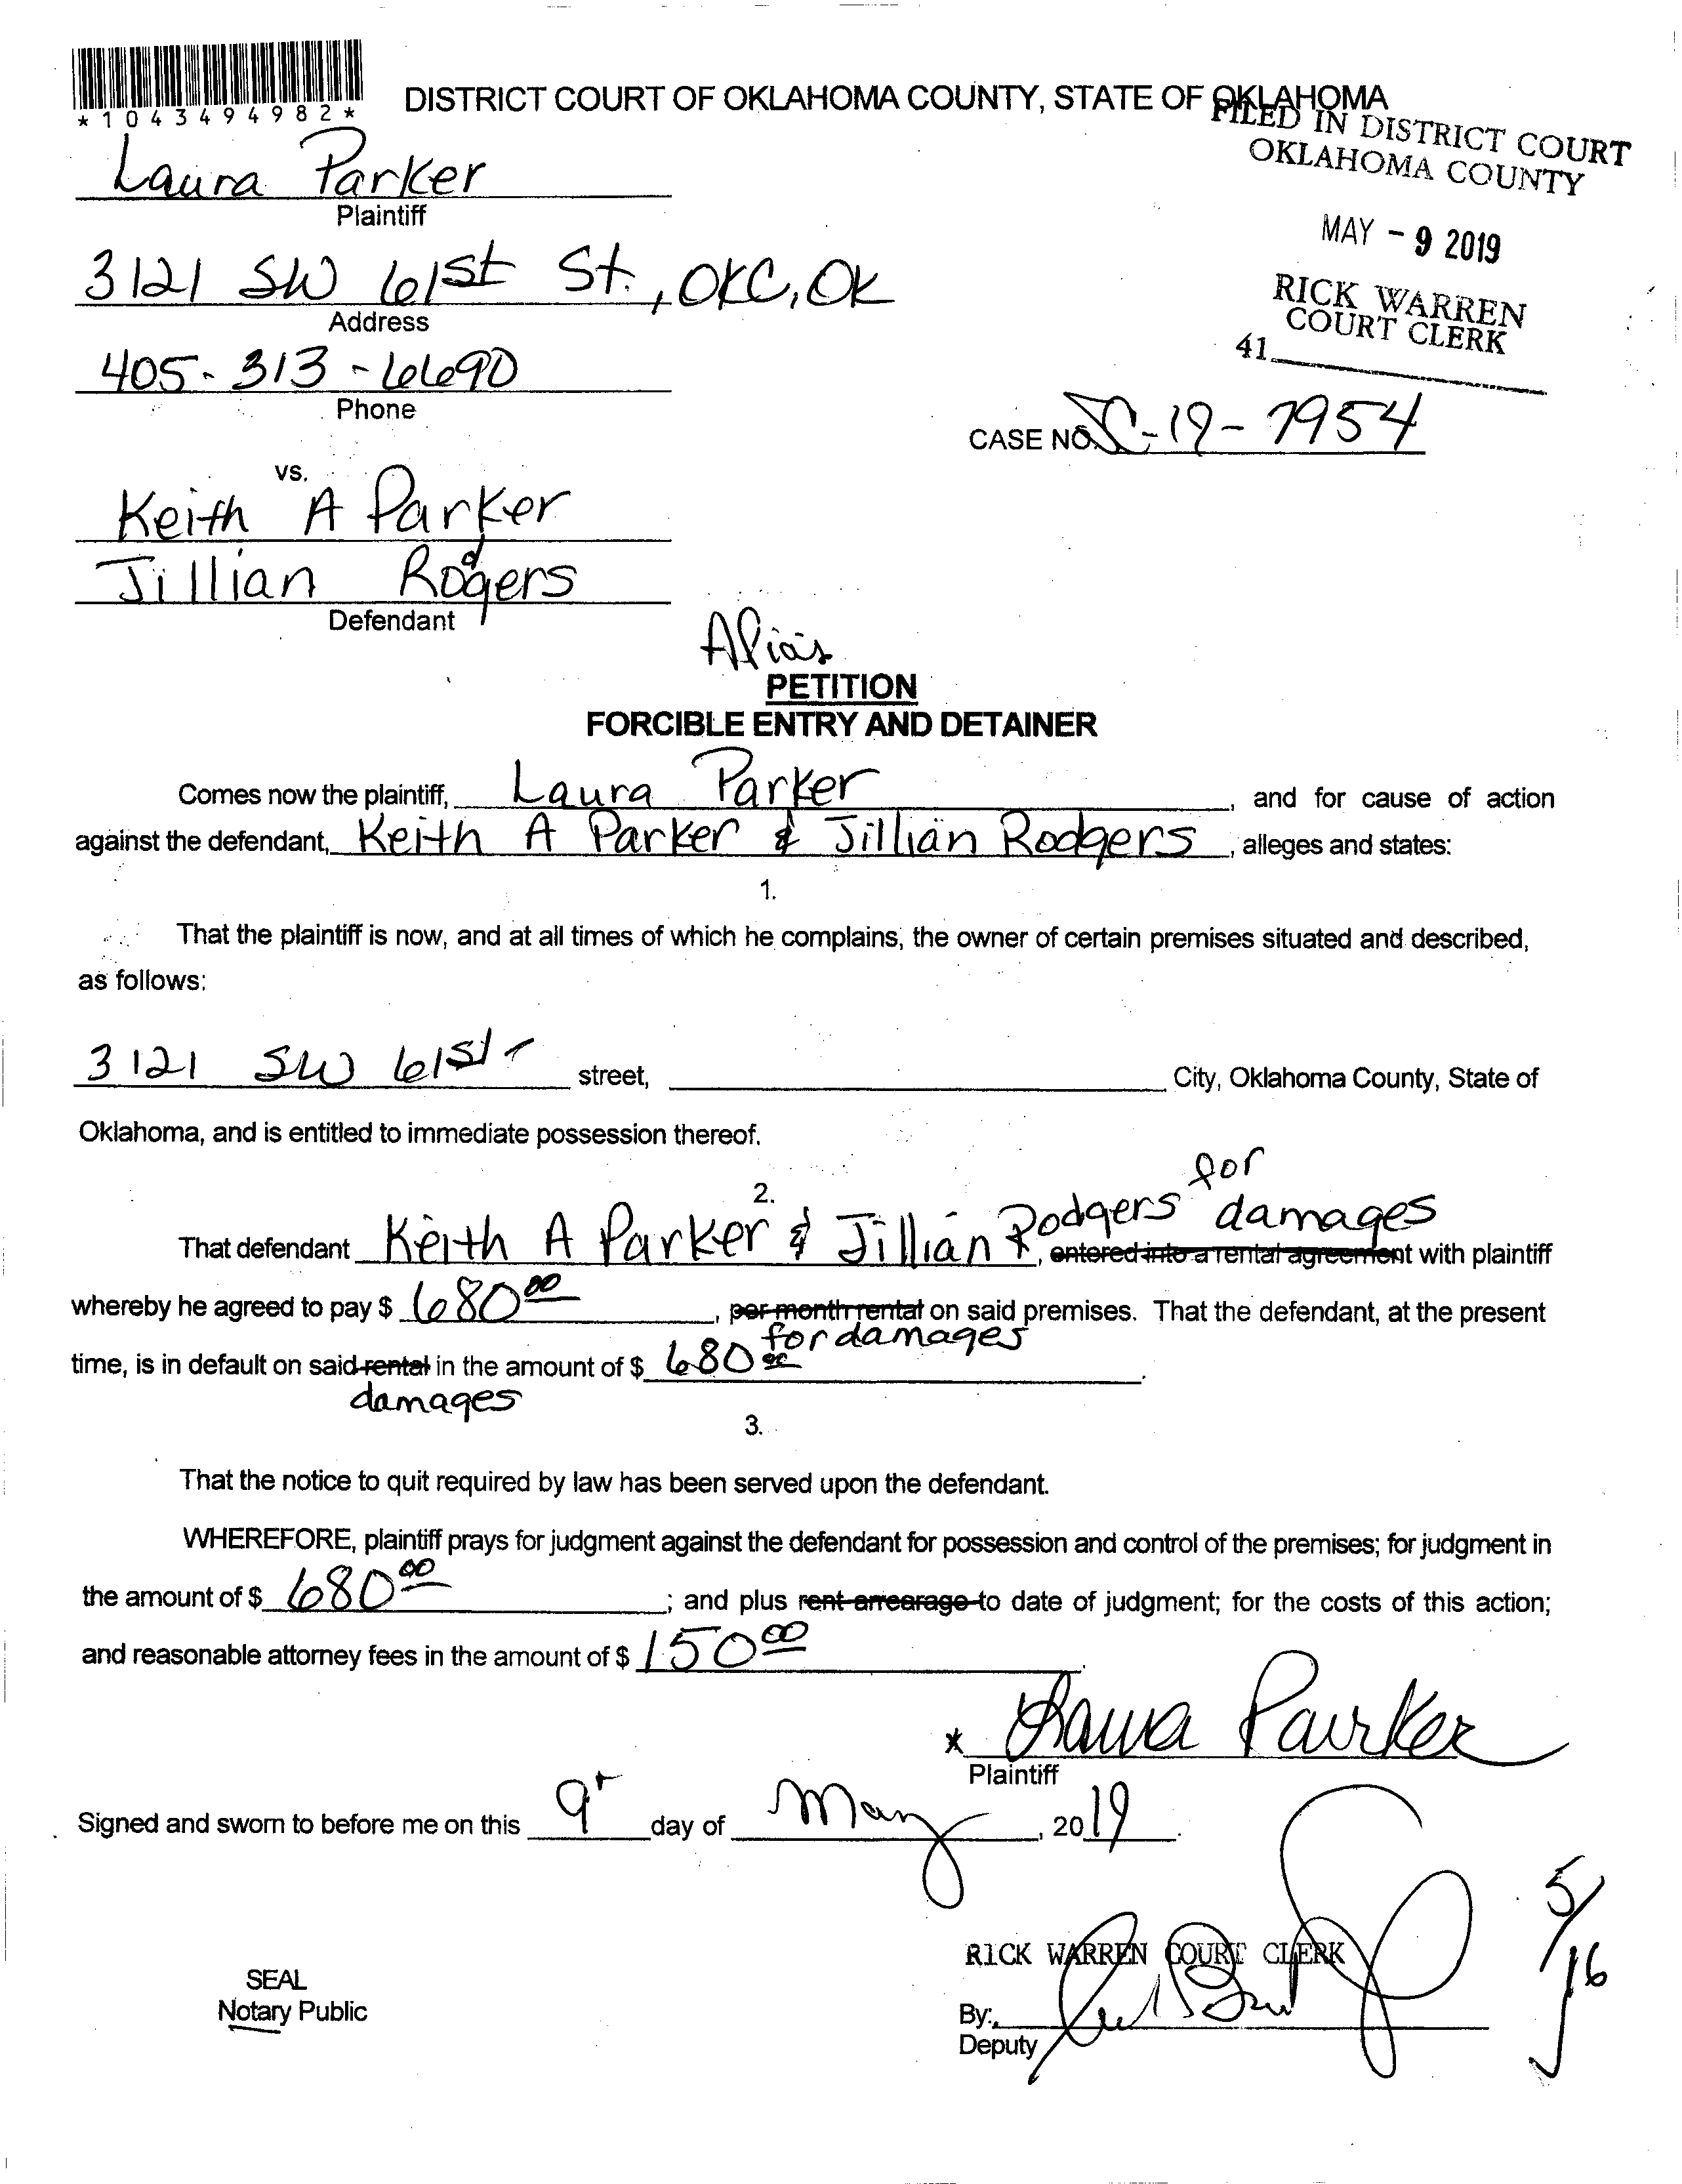 *1043494982*
DISTRICT COURT OF OKLAHOMA COUNTY, STATE OF OKLAHOMA
FILED IN DISTRICT COURT
OKLAHOMA COUNTY
MAY - 9 2019
RICK WARREN
COURT CLERK
41
Laura Parker
Plaintiff
3121 SW 61st St., OKC, OK
Address
405-313-6690
Phone
CASE NO. SC-19-7954
vs.
Keith A Parker
Jillian Rodgers
Defendant
Alias
PETITION
FORCIBLE ENTRY AND DETAINER
Comes now the plaintiff, Laura Parker, and for cause of action
against the defendant, Keith A Parker & Jillian Rodgers, alleges and states:
1.
That the plaintiff is now, and at all times of which he complains, the owner of certain premises situated and described,
as follows:
3121 SW 61st street, City, Oklahoma County, State of
Oklahoma, and is entitled to immediate possession thereof.
2.
for
damages
That defendant Keith A Parker & Jillian Rodgers, entered into a rental agreement with plaintiff
whereby he agreed to pay $ 680 00, per month rental on said premises. That the defendant, at the present
for damages
time, is in default on said rental in the amount of $ 680 00.
damages
3.
That the notice to quit required by law has been served upon the defendant.
WHEREFORE, plaintiff prays for judgment against the defendant for possession and control of the premises; for judgment in
the amount of $ 680 00; and plus rent arrearage to date of judgment; for the costs of this action;
and reasonable attorney fees in the amount of $ 150 00.
* Laura Parker
Plaintiff
Signed and sworn to before me on this 9th day of May, 2019.
5/16
RICK WARREN COURT CLERK
SEAL
Notary Public
By:
Deputy